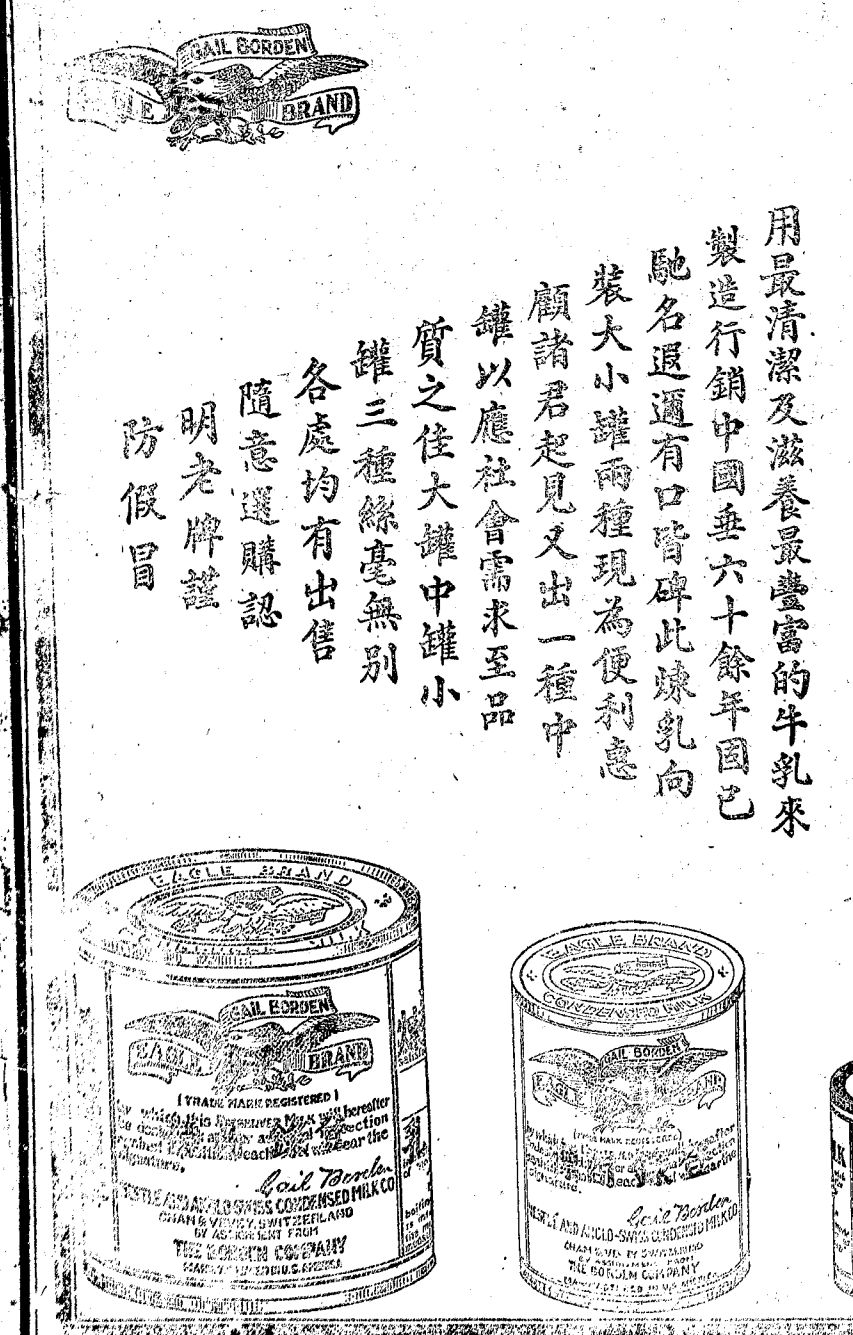 GAIL BORDEN
EAGLE BRAND
用最清潔及滋養最豐富的牛乳來
製造行銷中國垂六十餘年固已
馳名遐邇有口皆碑此煉乳向
裝大小罐兩種現為便利惠
顧諸君起見又出一種中
罐以應社會需求至品
質之佳大罐中罐小
罐三種絲毫無别
各處均有出售
隨意選購認
明老牌謹
防假冒
EAGLE BRAND
MILK
GAIL BORDEN
EAGLE BRAND
(TRADE MARK REGISTERED)
Gail Borden
NESTLE AND ANGLO-SWISS CONDENSED MILK CO
CHAM & VEVEY, SWITZERLAND
BY ASSIGNMENT FROM
THE BORDEN COMPANY
EAGLE BRAND
CONDENSED MILK
GAIL BORDEN
Gail Borden
NESTLÉ AND ANGLO-SWISS CONDENSED MILK CO
THE BORDEN COMPANY